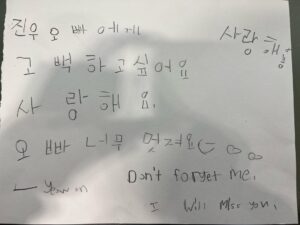 진우오빠에게
사랑행
고백하고싶어요
사랑해요.
오빠 너무 멋져요
Don't forget me,
I will miss you,